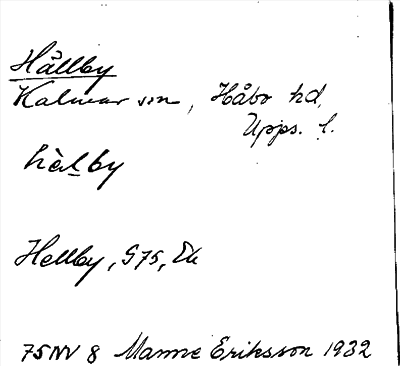 Hällby
Kalmar sn, Håbo hd,
Upps. l.
hèl̠by
Hellby, S75, Ek
75NV 8 Manne Eriksson 1932